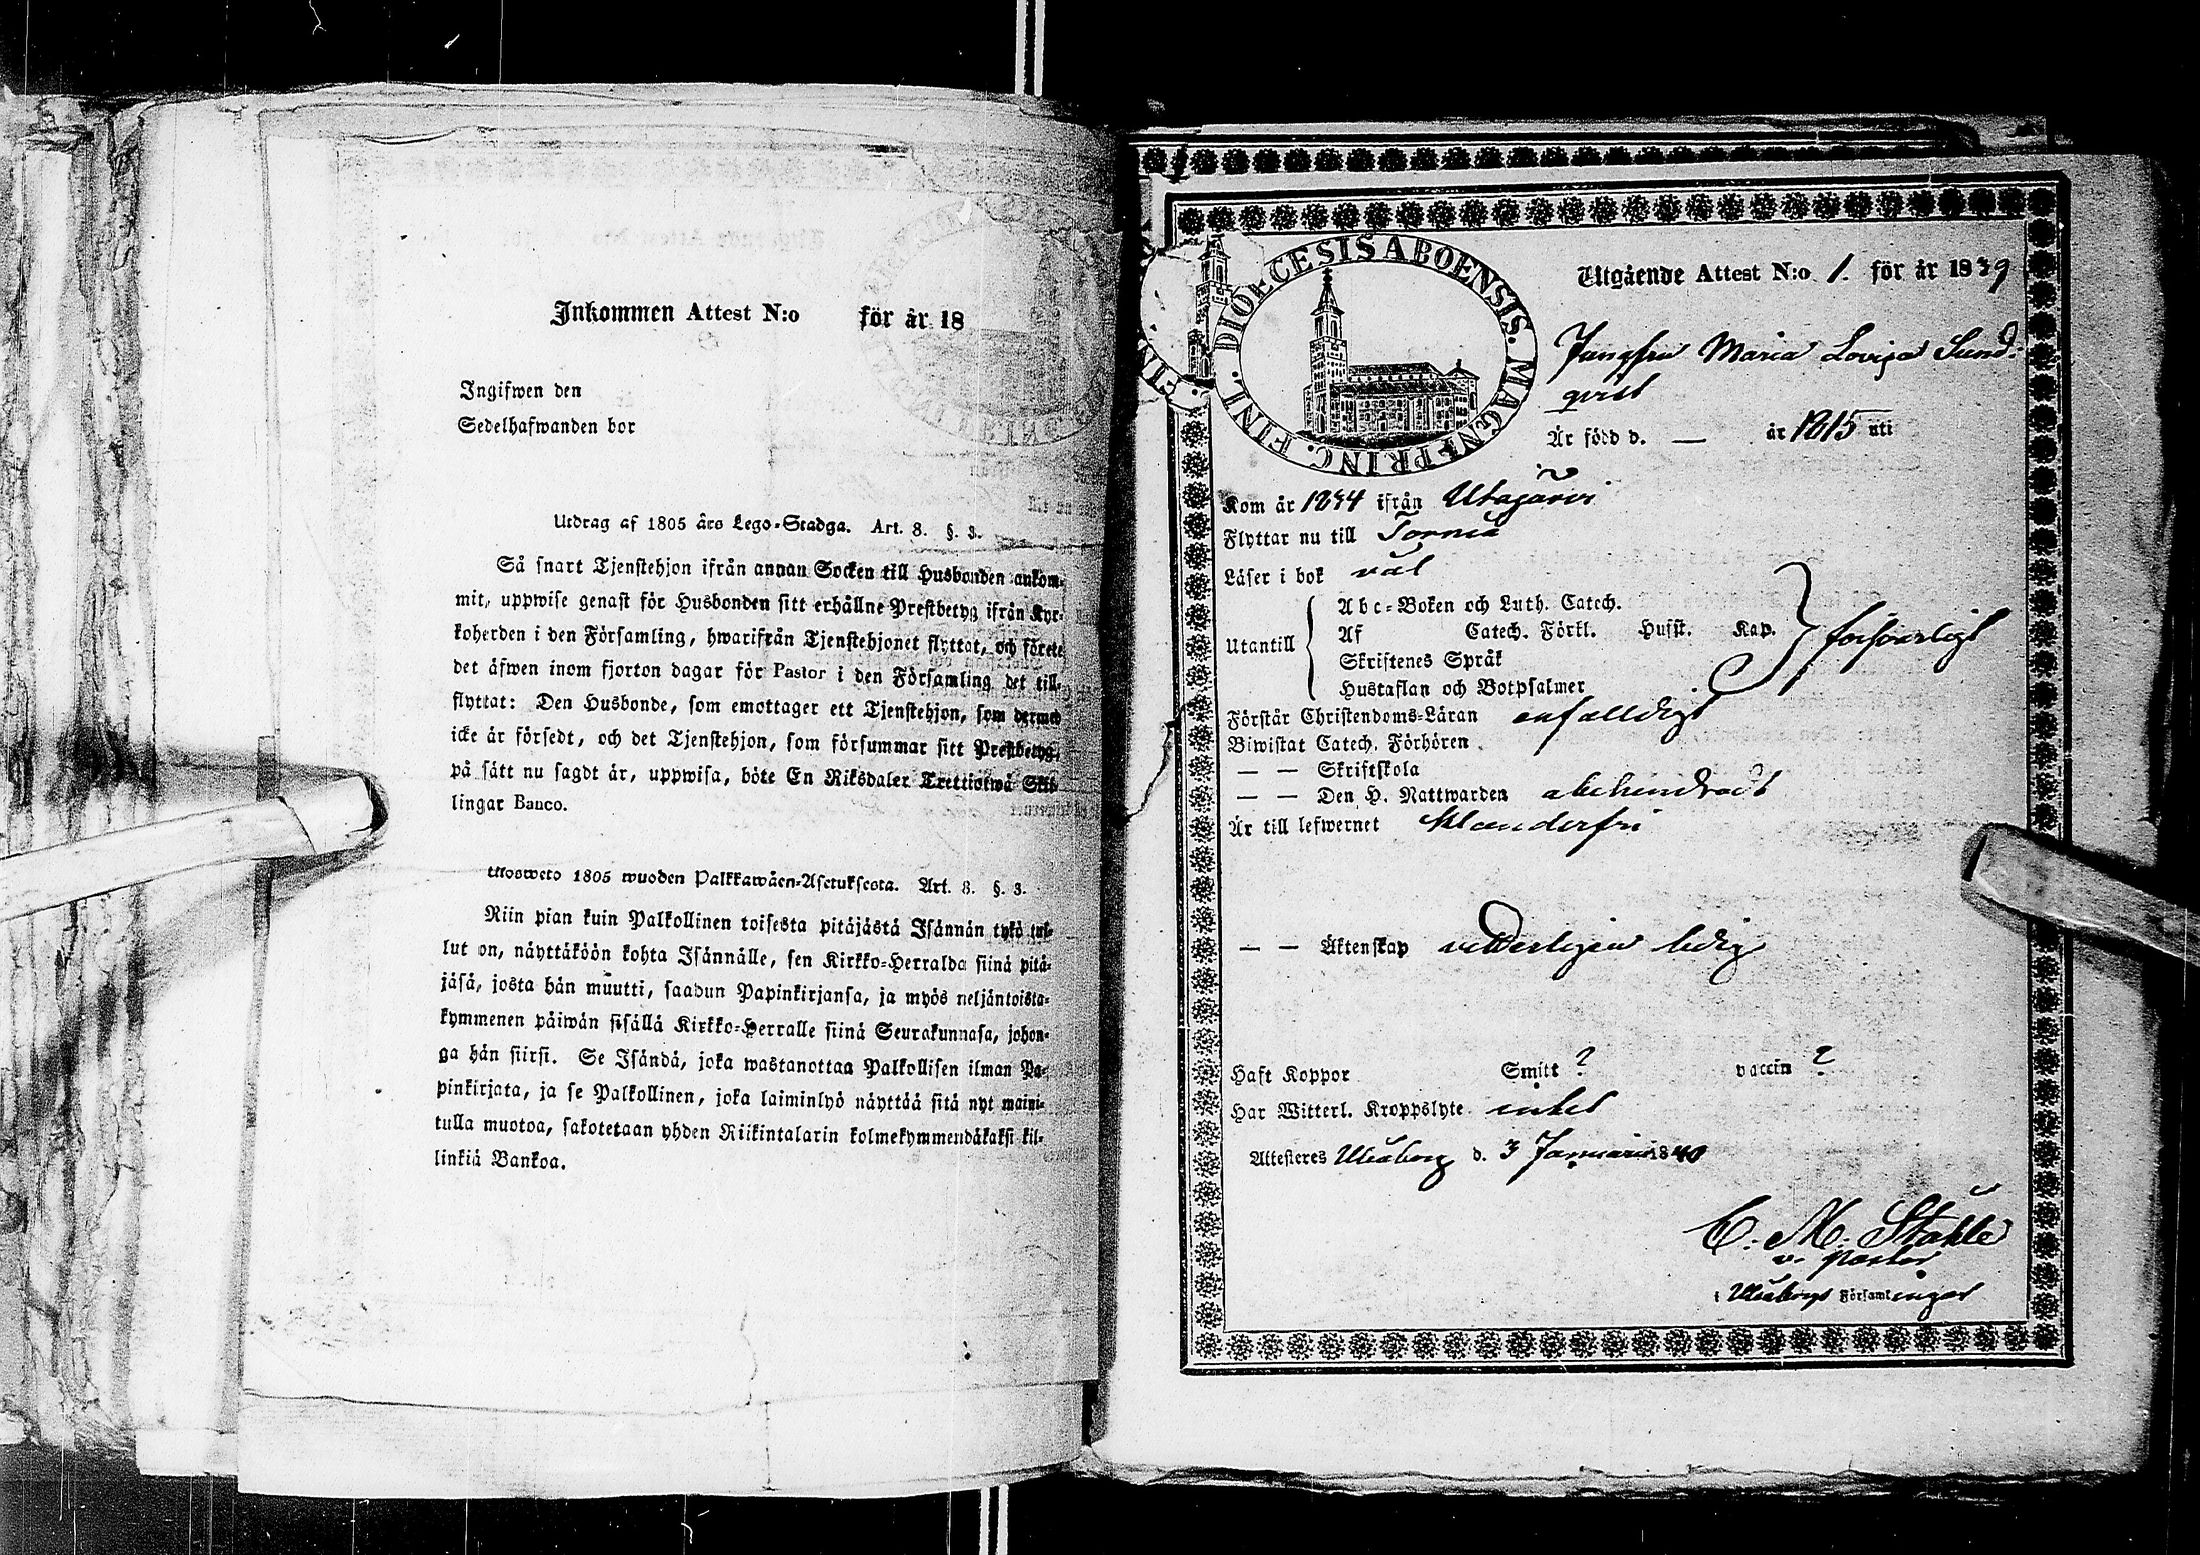 Inkommen Attest N:o för år 18
Ingifwen den
Sedelhafwanden bor
Utdrag af 1805 års Lego-Stadga. Art. 8. §. 3.
Så snart Tjenstehjon ifrån annan Socken till Husbonden ankom-
mit, uppwise genast för Husbonden sitt erhållne Prestbetyg ifrån Kyr-
koherden i den Församling, hwarifrån Tjenstehjonet flyttat, och förete
det äfwen inom fjorton dagar för Pastor i den Församling det till-
flyttat: Den Husbonde, som emottager ett Tjenstehjon, som dermed
icke är försedt, och det Tjenstehjon, som försummar sitt Prestbetyg,
på sätt nu sagdt är, uppwisa, böte En Riksdaler Trettiotwå Skil-
lingar Banco.
Ulosweto 1805 wuoden Palkkawäen-Asetuksesta. Art. 8. §. 3.
Niin pian kuin Palkollinen toisesta pitäjästä Isännän tykö tul-
lut on, näyttäköön kohta Isännälle, sen Kirkko-Herralda siinä pitä-
jäsä, josta hän muutti, saadun Papinkirjansa, ja myös neljäntoista-
kymmenen päiwän sisällä Kirkko-Herralle siinä Seurakunnasa, johon-
ga hän siirsi. Se Isändä, joka wastanottaa Palkollisen ilman Pa-
pinkirjata, ja se Palkollinen, joka laiminlyö näyttää sitä nyt maini-
tulla muotoa, sakotetaan yhden Riikintalarin kolmekymmendäkaksi kil-
linkiä Bankoa.
DIOECESIS ABOENSIS. MAGNI PRINC. FINL.
Utgående Attest N:o 1. för år 1839
Jungfru Maria Lovisa Sund-
qvist
Är född d. — år 1815 uti
Kom år 1834 ifrån Utajärvi
Flyttar nu till Torneå
Läser i bok väl
Abc-Boken och Luth. Catech.
Af Catech. Förkl. Husst. Kap.
Utantill försvarligt
Skriftenes Språk
Hustaflan och Botpsalmer
Förstår Christendoms-Läran enfalldigt
Biwistat Catech. Förhören
— — Skriftskola
— — Den H. Nattwarden obehindradt
Är till lefwernet klanderfri
— — Äktenskap vetterligen ledig
Haft Koppor Smitt ? vaccin ?
Har Witterl. Kroppslyte intet
Attesteres Uleåborg d. 3 Januarii 1840
C. M. Ståhle
v. pastor
i Uleåborgs Församlingar